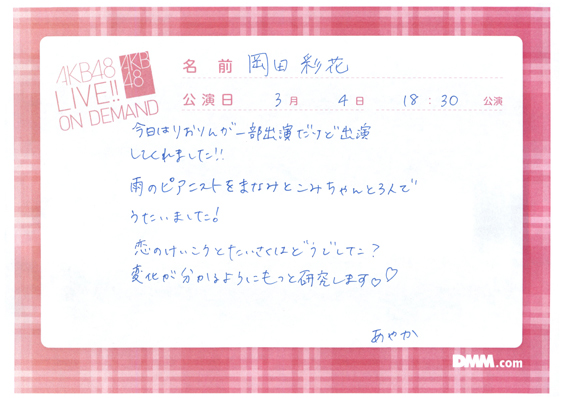 AKB48
LIVE!!
ON DEMAND
AKB
48
名前 岡田彩花
公演日 3月 4日 18:30 公演
今日はりおりんが一部出演だけど出演
してくれました!!
雨のピアニストをまなみとこみちゃんと3人で
うたいました!
恋のけいこうとたいさくはどうでした?
変化が分かるようにもっと研究します♡♡
あやか
DMM.com